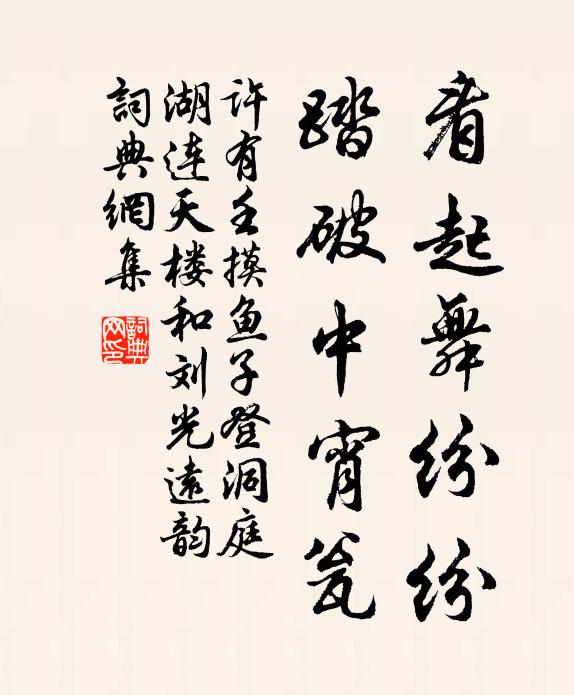 看起舞纷纷
踏破中宵瓮
许有壬摸鱼子登洞庭
湖连天楼和刘光远韵
詞典網集
詞典
网印